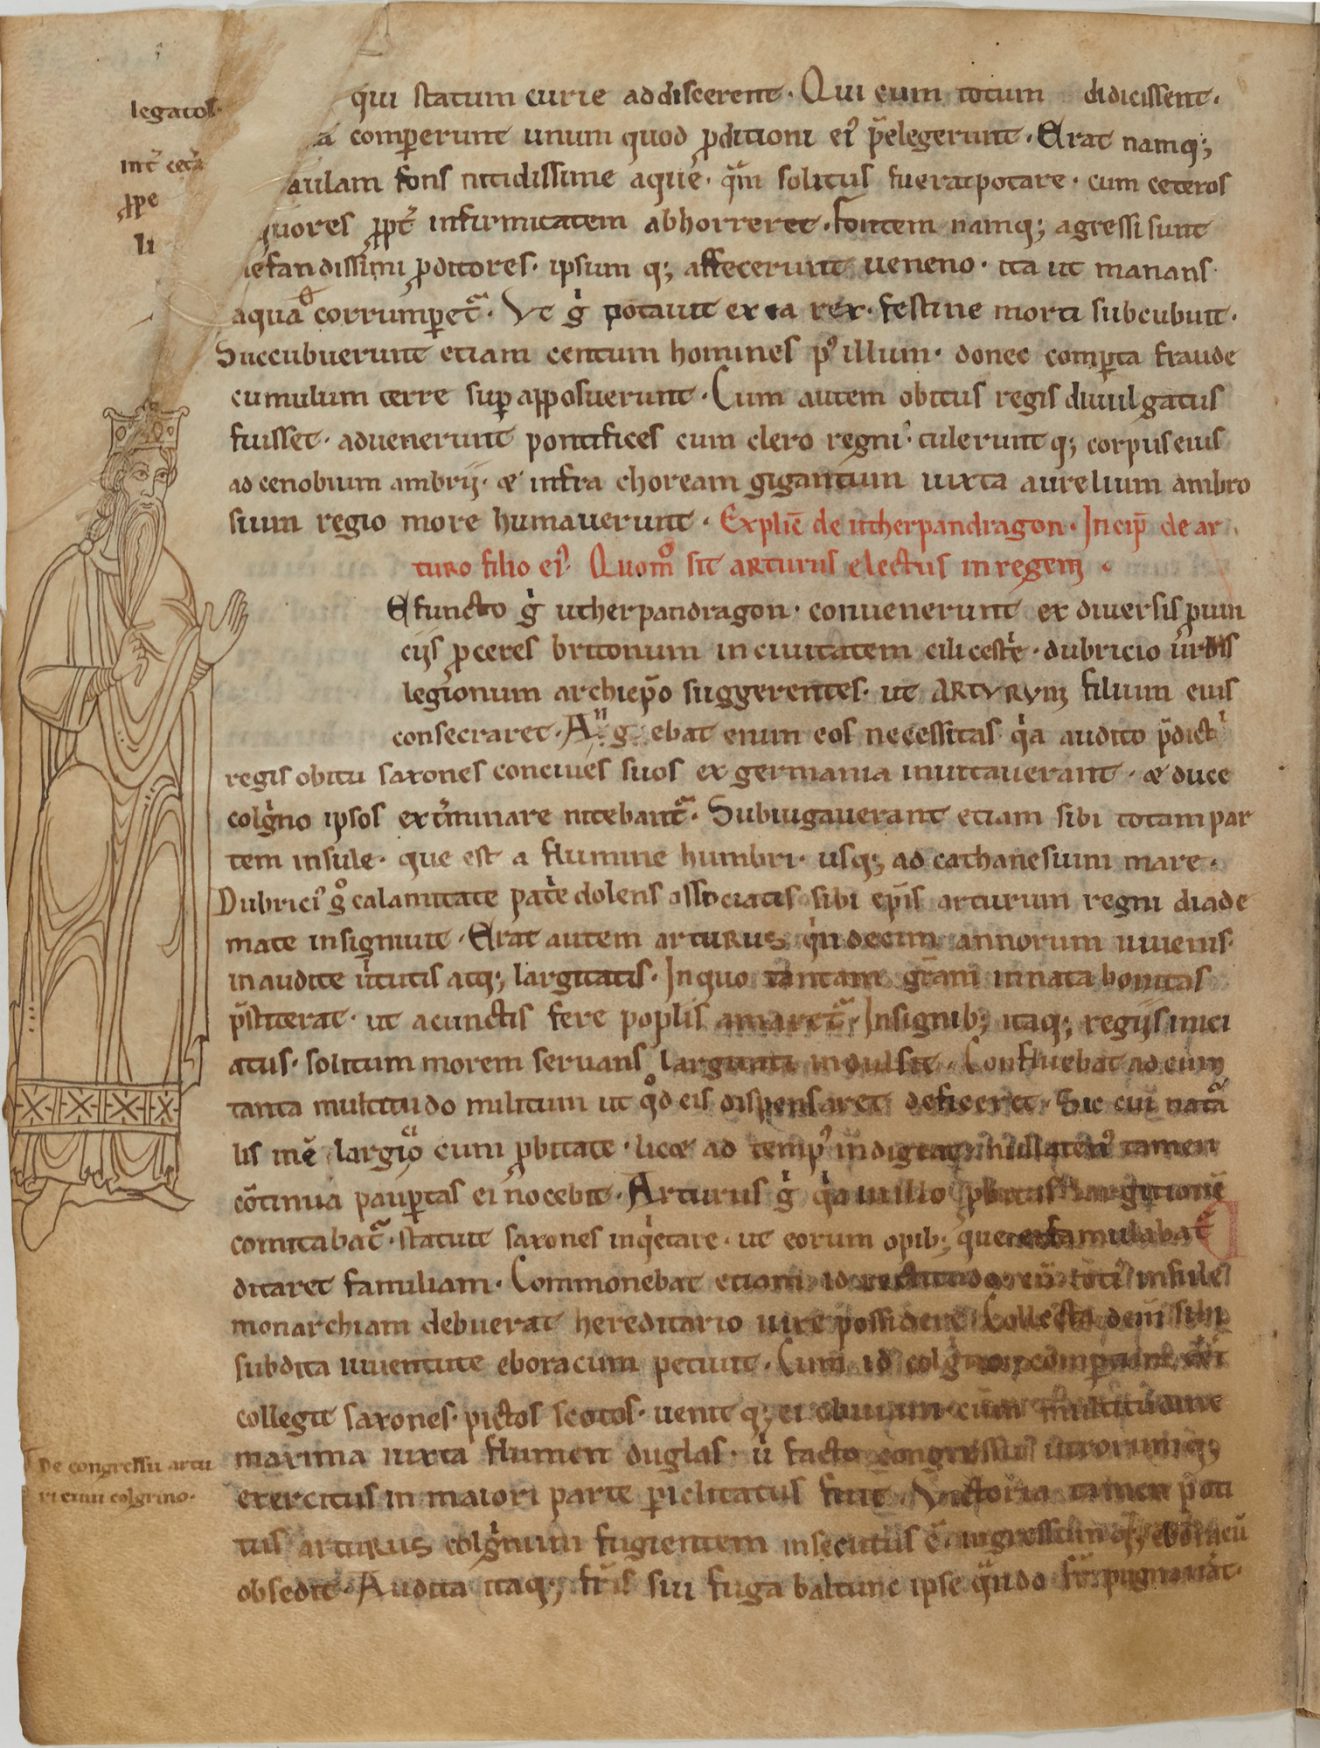 legatos
qui statum curie addiscerent. Qui cum totum didicissent.
int̃ cet̃a
comꝑerunt unum quod ꝓditioni ei᾽ p̃elegerunt. Erat namq;
aulam fons nitidissime aque. q̃m solitus fuerat potare. cum ceteros
ꝓpe
li
quores ꝓpt̃ infirmitatem abhorreret. Fontem namq; agressi sunt
nefandissimi ꝓditores. ipsum q; affecerunt ueneno. ita ut manans
aqua corrumperet᷑. Vt g̊ potauit ex ea rex. festine morti subcubuit.
Succubuerunt etiam centum homines p᾽ illum. donec comꝑta fraude
cumulum terre suꝑ apposuerunt. Cum autem obitus regis diuulgatus
fuisset. aduenerunt pontifices cum clero regni. tulerunt q; corpus eius
ad cenobium ambrij. & infra choream gigantum iuxta aurelium ambro
sium regio more humauerunt. Explic̄ de utherpandragon. Incip̄ de ar
turo filio ei᾽. Quom̊ sit arturus electus in regem.
Efuncto g̊ utherpandragon. conuenerunt ex diuersis ꝓuin
cijs ꝓceres britonum in ciuitatem cilicestr̃e. dubricio urbis
legionum archiep̄o suggerentes. ut ARTVRVM filium eius
consecraret. An g ebat enim eos necessitas q̇a audito p̃dicti
regis obitu saxones conciues suos ex germania inuitauerant. & duce
colg̃no ipsos ext̃minare nitebant᷑. Subiugauerant etiam sibi totam par
tem insule. que est a flumine humbri. usq; ad cathanesium mare.
Dubrici᾽ g̊ calamitate pat̃e dolens associatis sibi ep̄is arturum regni diade
mate insigniuit. Erat autem arturus quindecim annorum iuuenis
inaudite ũtutis atq; largitatis. In quo tantam gr̄am innata bonitas
p̃stiterat. ut a cunctis fere poplis amaret᷑. Insignib; itaq; regijs inici
atus. solitum morem seruans largitati indulsit. Confluebat ad eum
tanta multitudo militum ut q̊d eis dispensaret deficeret. Sic cui natᷓa
lis inē largiō cum ꝓbitate. licet ad temp᾽ indigeat nullaten᾽ tamen
cōtinua pauꝑtas ei nocebit. Arturus g̊ q̇a in illo ꝓbitas largitionē
comitabat᷑. statuit saxones inq̇etare. ut eorum opib; que ei famulabat᷑
ditaret familiam. Commonebat etiam id rectitudo. cū toti᾽ insule
monarchiam debuerat hereditario iure possidere. Collecta deni sibi
subdita iuuentute eboracum petiuit. Cum id colg̃no comꝑtum eēt
collegit saxones. pictos scotos. uenit q; ei obuiam cum multitudine
maxima iuxta flumen duglas. ũ facto congressu utrorumq;
De congressu artu
ri cum colgrino.
exercitus in maiori parte ꝑiclitatus fuit. Victoria tamen poti
tus arturus colg̃num fugientem insecutus ē. ingressum q; eboracū
obsedit. Audita itaq; fr̄is sui fuga baldunc ipse